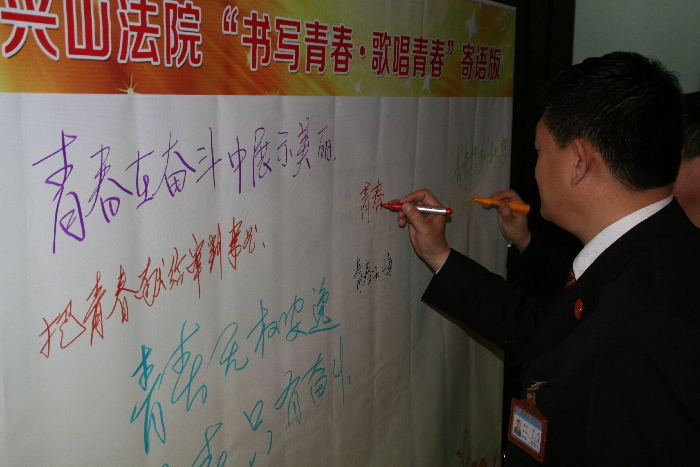 兴山法院“书写青春·歌唱青春”寄语版
青春在奋斗中展示美丽.
青春
把青春献给审判事业.
青春永一真
青春无权安逸
青春只有奋斗.